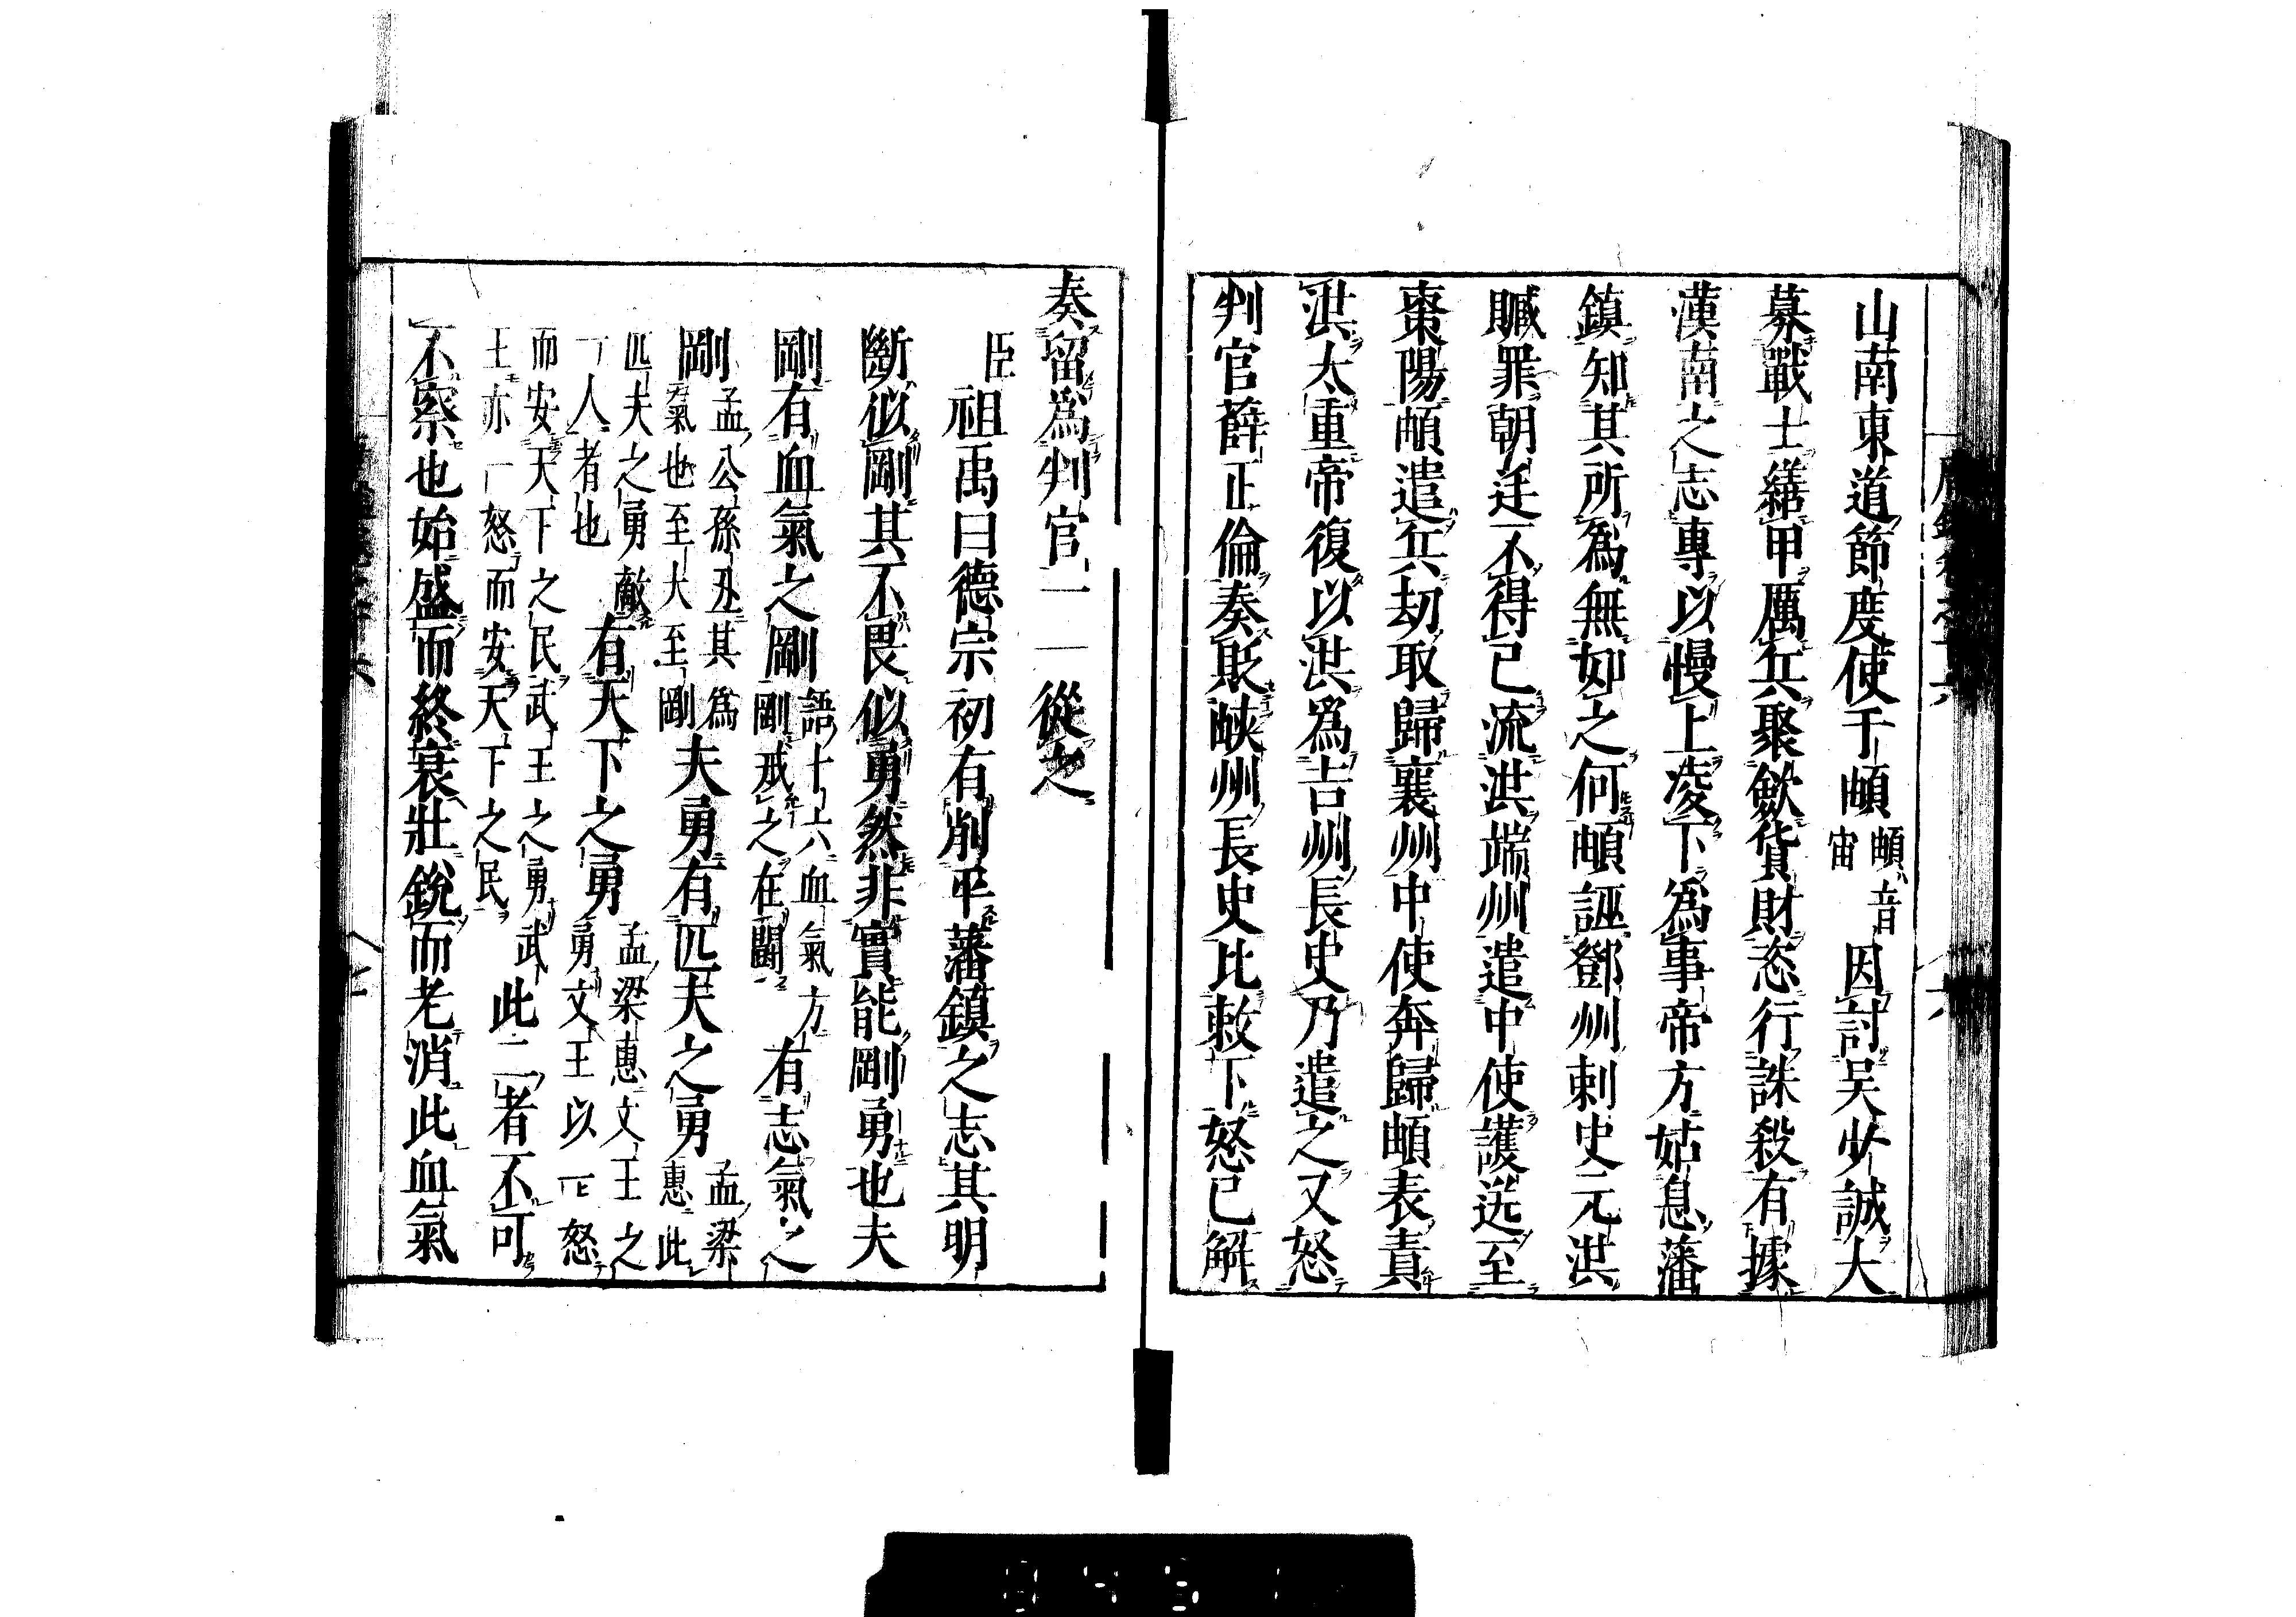 山南東道節度使于頔頔音宙因討吳少誠大
募戰士繕甲厲兵聚斂貨財恣行誅殺有據
漢南之志專以慢上凌下爲事帝方姑息藩
鎮知其所爲無如之何頔誣鄧州刺史元洪
贓罪朝廷不得已流洪端州遣中使護送至
棗陽頔遣兵劫取歸襄州中使奔歸頔表責
洪太重帝復以洪爲吉州長史乃遣之又怒
判官薛正倫奏貶峽州長史比敕下怒已解
奏留爲判官一一從之
臣祖禹曰德宗初有削平藩鎮之志其明
斷似剛其不畏似勇然非實能剛勇也夫
剛有血氣之剛語十六血氣方剛戒之在鬪有志氣之
剛孟公孫丑其爲氣也至大至剛夫勇有匹夫之勇孟梁惠此
匹夫之勇敵一人者也有天下之勇孟梁惠文王之勇文王以一怒
而安天下之民武王之勇武王亦一怒而安天下之民此二者不可
不察也始盛而終衰壯銳而老消此血氣